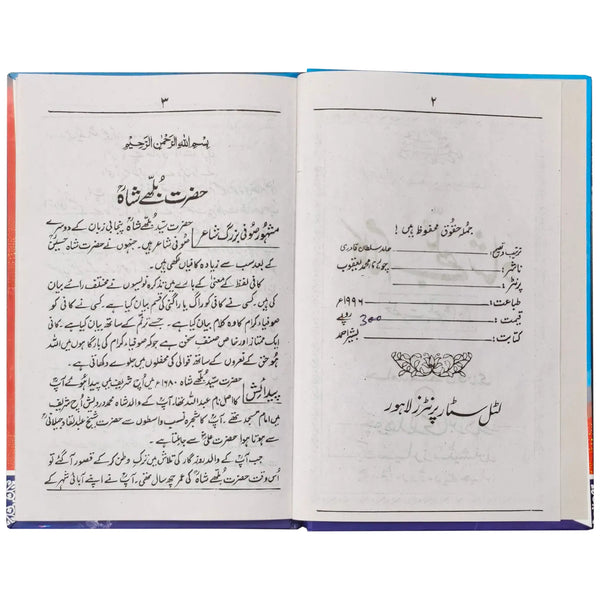 ۲
جملہ حقوق محفوظ ہیں!
ترتیب و تصحیح: عابد سلطان قادری
ناشر: چوہدری محمد یعقوب
پرنٹر:
طباعت: ۱۹۹۶ء
قیمت: 300 روپے
کتابت: بشیر احمد
لٹل سٹار پرنٹرز لاہور
۳
بسم اللہ الرحمٰن الرحیم
حضرت بُلّھے شاہؒ
مشہور صوفی بزرگ شاعر حضرت سیّد بُلّھے شاہؒ پنجابی زبان کے دوسرے
صوفی شاعر ہیں۔ جنہوں نے حضرت شاہ حسینؒ
کے بعد سب سے زیادہ کافیاں لکھی ہیں۔
کافی لفظ کے معنیٰ کے بارے میں تذکرہ نویسوں نے مختلف رائے بیان
کی ہیں۔ کسی نے کافی کو راگ یا راگنی کی قسم بیان کیا ہے۔ کسی نے کافی کو
صوفیاء کرام کا وہ کلام بیان کیا ہے، جسے ترنّم کے ساتھ بیان کیا ہے۔ کافی
ایک ممتاز اور خاص صنف سخن ہے جو کہ صوفیاء کرام کی بارگاہوں میں اللہ
ھو حق کے نعروں کے ساتھ قوالی کی محفلوں میں جلوے دکھاتی ہے۔
پیدائش حضرت سیّد بُلّھے شاہؒ ۱۶۸۰ء میں اُچ شریف میں پیدا ہوئے آپؒ
کا اصلی نام عبداللہ تھا۔ آپؒ کے والد شاہ محمد درویش اُچ شریف
میں امام مسجد تھے۔ آپؒ کا شجرہ نسب واسطوں سے حضرت شیخ عبدالقادر جیلانیؒ
سے ہوتا ہوا حضرت علیؓ سے جا ملتا ہے۔
جب آپؒ کے والد روزگار کی تلاش میں ترکِ وطن کر کے قصور آ گئے تو
اُس وقت حضرت بُلّھے شاہؒ کی عمر چھ سال تھی۔ آپؒ نے اپنے آبائی شہر کے